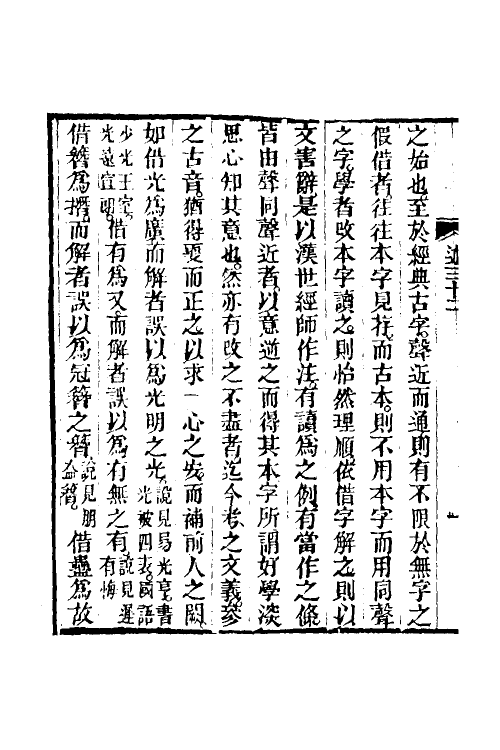 之始也至於經典古字聲近而通則有不限於無字之
假借者往往本字見存而古本則不用本字而用同聲
之字學者改本字讀之則怡然理順依借字解之則以
文害辭是以漢世經師作注有讀為之例有當作之條
皆由聲同聲近者以意逆之而得其本字所謂好學深
思心知其意也然亦有改之不盡者迄今考之文義參
之古音猶得更而正之以求一心之安而補前人之闕
如借光為廣而解者誤以為光明之光說見易光亨書光被四表國語
少光王室光遠宣朗借有為又而解者誤以為有無之有說見遲有悔
借簪為撍而解者誤以為冠簪之簪說見朋盍簪借蠱為故
經三十二